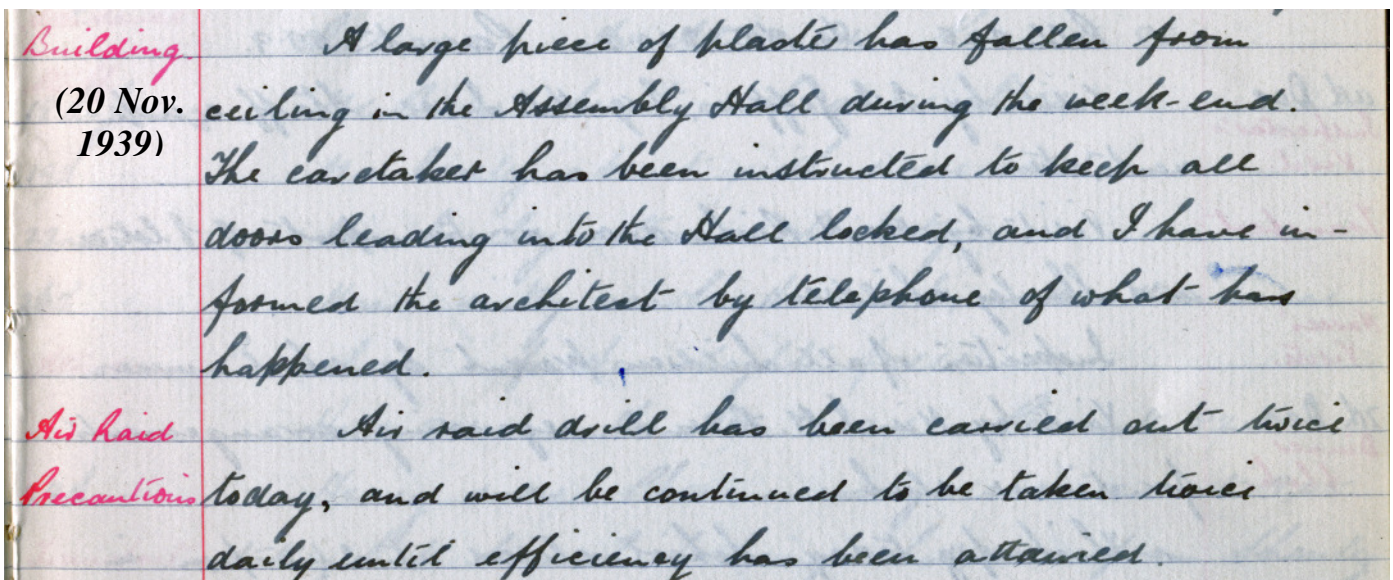 Building. A large piece of plaster has fallen from
(20 Nov. ceiling in the Assembly Hall during the week-end.
1939)
The caretaker has been instructed to keep all
doors leading into the Hall locked, and I have in-
formed the architect by telephone of what has
happened.
Air Raid Air raid drill has been carried out twice
Precautions today, and will be continued to be taken twice
daily until efficiency has been attained.